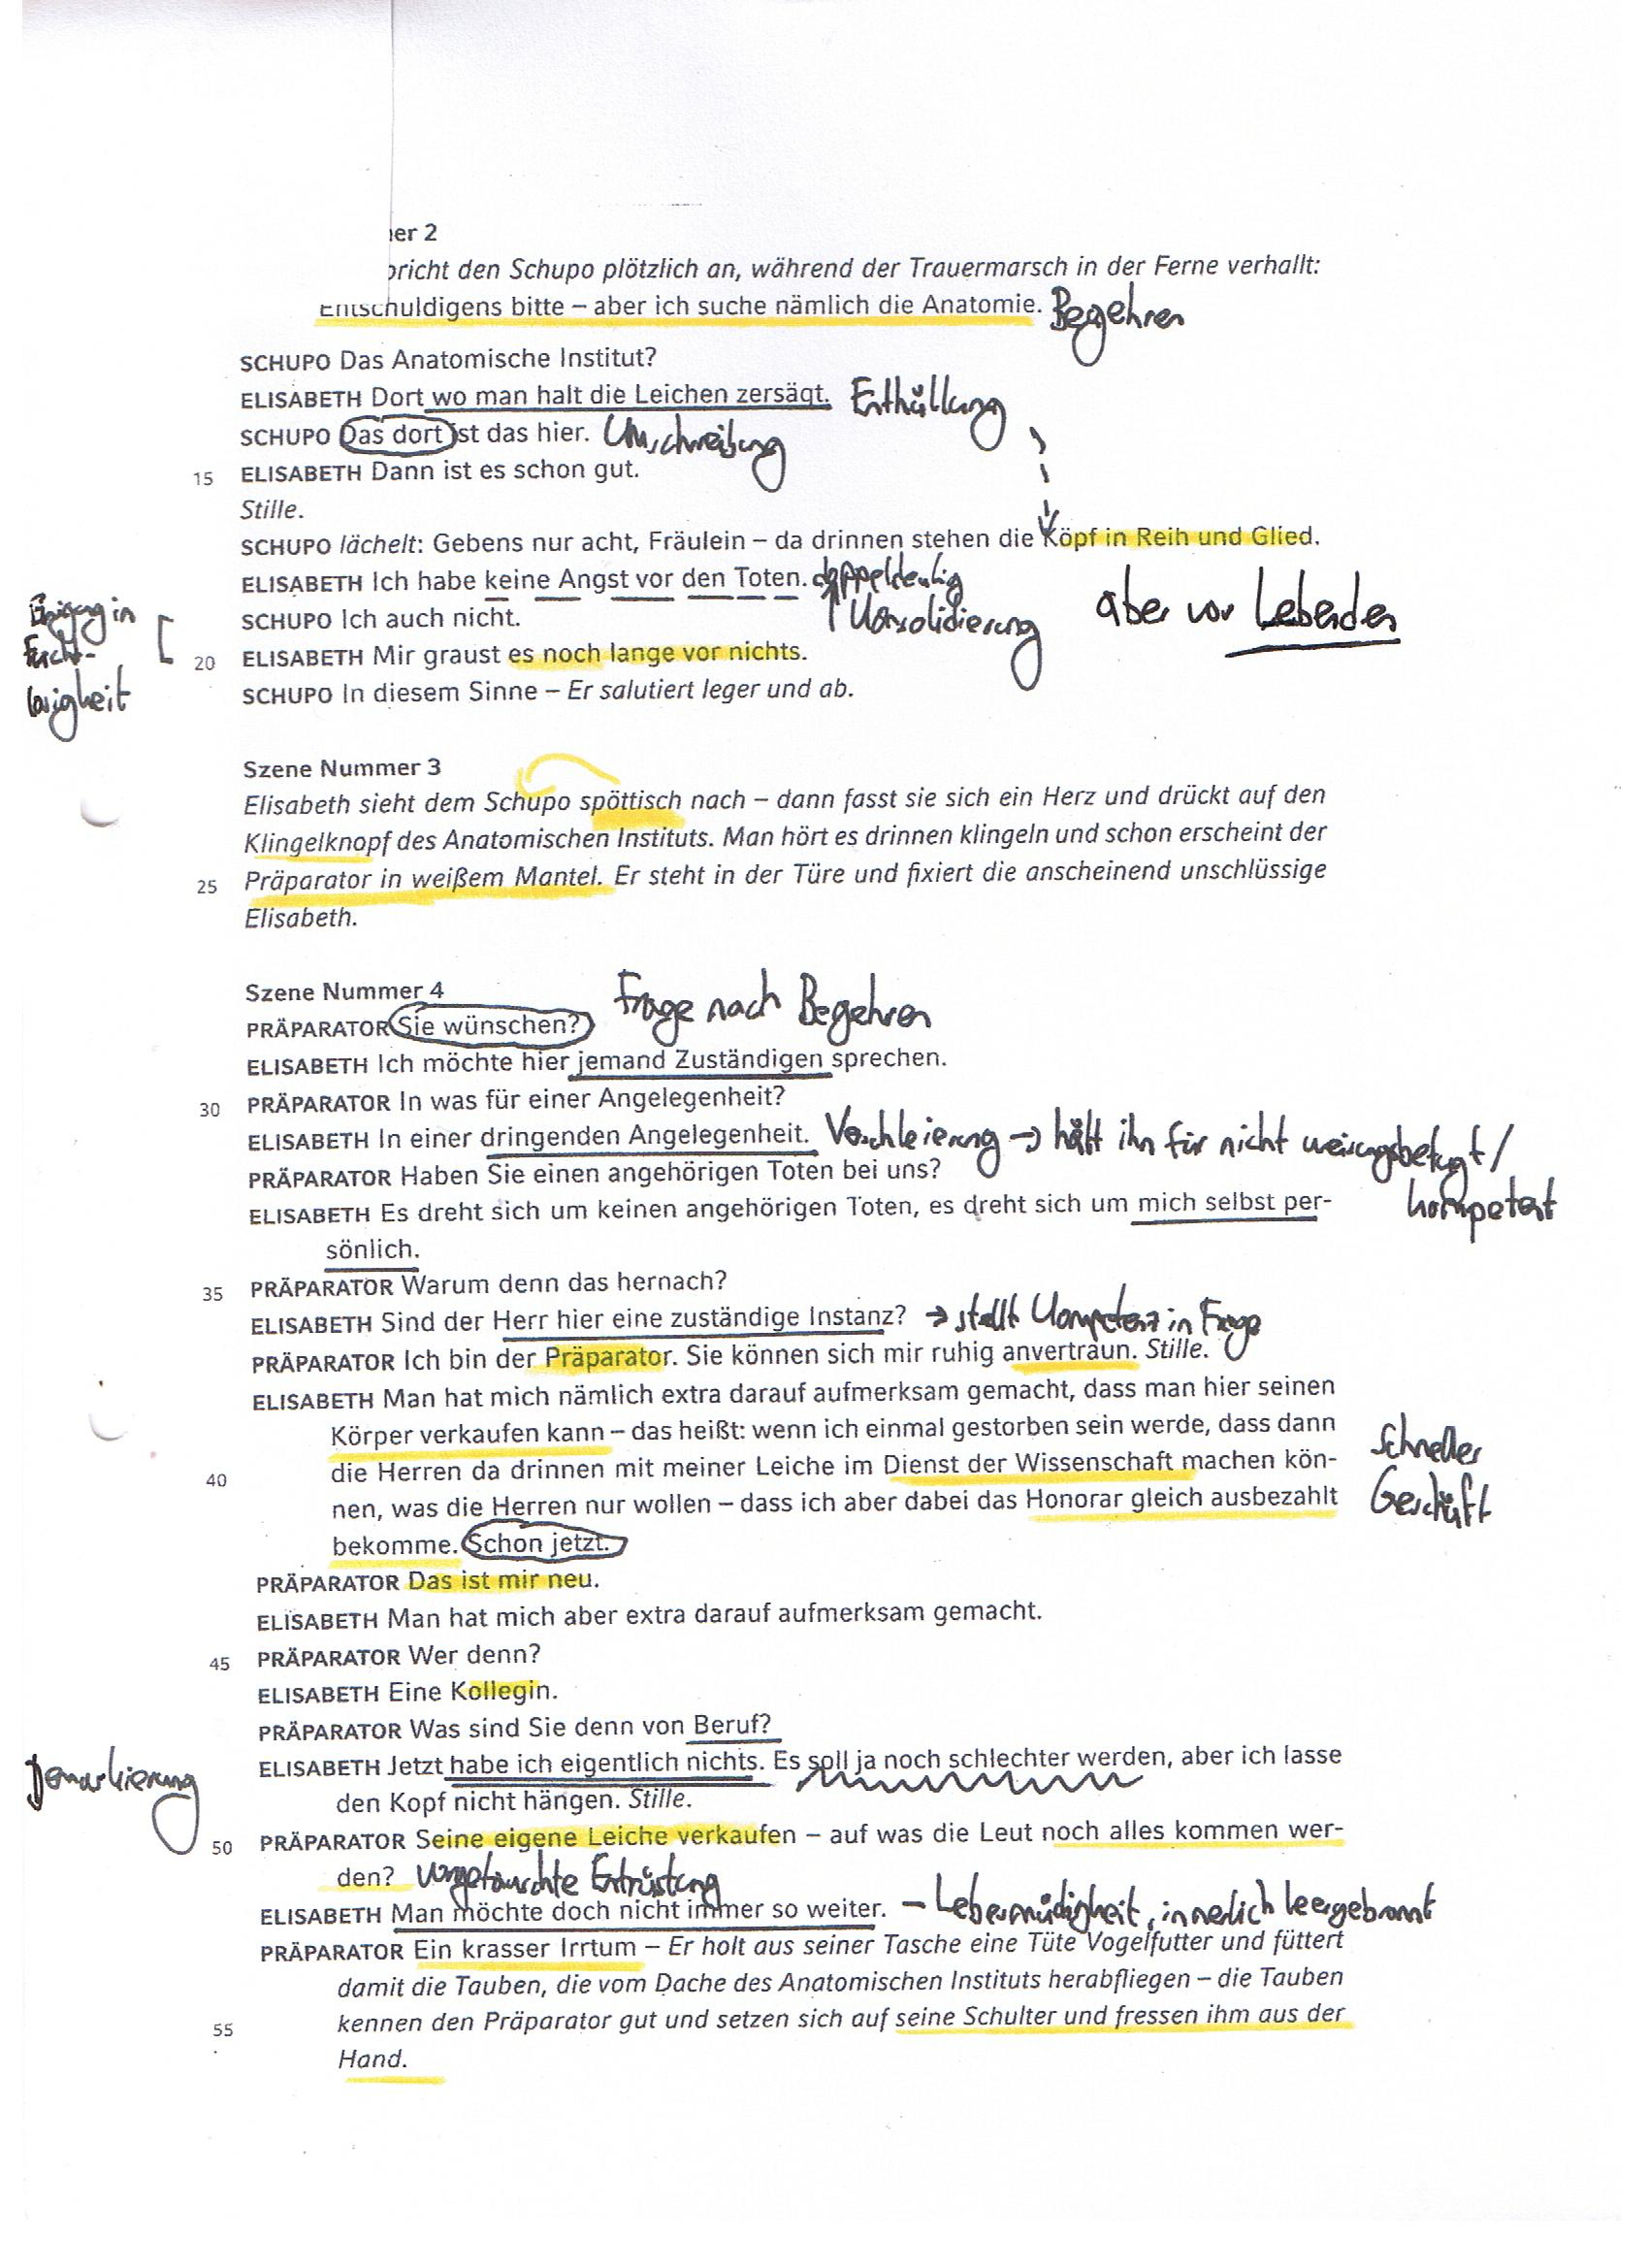 er 2
pricht den Schupo plötzlich an, während der Trauermarsch in der Ferne verhallt:
Entschuldigens bitte – aber ich suche nämlich die Anatomie. Begehren
SCHUPO Das Anatomische Institut?
ELISABETH Dort wo man halt die Leichen zersägt. Enthüllung
SCHUPO Das dort ist das hier. Umschreibung
15 ELISABETH Dann ist es schon gut.
Stille.
SCHUPO lächelt: Gebens nur acht, Fräulein – da drinnen stehen die Köpf in Reih und Glied.
ELISABETH Ich habe keine Angst vor den Toten. doppeldeutig aber vor Lebenden
SCHUPO Ich auch nicht. Konsolidierung
Einigung in Furcht-
losigkeit
20 ELISABETH Mir graust es noch lange vor nichts.
SCHUPO In diesem Sinne – Er salutiert leger und ab.
Szene Nummer 3
Elisabeth sieht dem Schupo spöttisch nach – dann fasst sie sich ein Herz und drückt auf den
Klingelknopf des Anatomischen Instituts. Man hört es drinnen klingeln und schon erscheint der
25 Präparator in weißem Mantel. Er steht in der Türe und fixiert die anscheinend unschlüssige
Elisabeth.
Szene Nummer 4
PRÄPARATOR Sie wünschen? Frage nach Begehren
ELISABETH Ich möchte hier jemand Zuständigen sprechen.
30 PRÄPARATOR In was für einer Angelegenheit?
ELISABETH In einer dringenden Angelegenheit. Verschleierung → hält ihn für nicht weisungsbefugt/
kompetent
PRÄPARATOR Haben Sie einen angehörigen Toten bei uns?
ELISABETH Es dreht sich um keinen angehörigen Toten, es dreht sich um mich selbst per-
sönlich.
35 PRÄPARATOR Warum denn das hernach?
ELISABETH Sind der Herr hier eine zuständige Instanz? → stellt Kompetenz in Frage
PRÄPARATOR Ich bin der Präparator. Sie können sich mir ruhig anvertraun. Stille.
ELISABETH Man hat mich nämlich extra darauf aufmerksam gemacht, dass man hier seinen
Körper verkaufen kann – das heißt: wenn ich einmal gestorben sein werde, dass dann
40 die Herren da drinnen mit meiner Leiche im Dienst der Wissenschaft machen kön-
nen, was die Herren nur wollen – dass ich aber dabei das Honorar gleich ausbezahlt
bekomme. Schon jetzt.
Schneller
Geschäft
PRÄPARATOR Das ist mir neu.
ELISABETH Man hat mich aber extra darauf aufmerksam gemacht.
45 PRÄPARATOR Wer denn?
ELISABETH Eine Kollegin.
PRÄPARATOR Was sind Sie denn von Beruf?
ELISABETH Jetzt habe ich eigentlich nichts. Es soll ja noch schlechter werden, aber ich lasse
den Kopf nicht hängen. Stille.
Demarkierung
50 PRÄPARATOR Seine eigene Leiche verkaufen – auf was die Leut noch alles kommen wer-
den? vorgetäuschte Entrüstung
ELISABETH Man möchte doch nicht immer so weiter. – Lebensmüdigkeit, innerlich leergebrannt
PRÄPARATOR Ein krasser Irrtum – Er holt aus seiner Tasche eine Tüte Vogelfutter und füttert
damit die Tauben, die vom Dache des Anatomischen Instituts herabfliegen – die Tauben
55 kennen den Präparator gut und setzen sich auf seine Schulter und fressen ihm aus der
Hand.